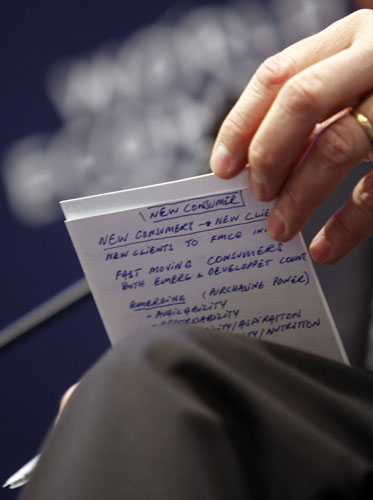 NEW CONSUMER
NEW CONSUMERS → NEW CLIE
NEW CLIENTS TO FMCG IN
FAST MOVING CONSUMERS
BOTH EMERG & DEVELOPPET COUNT
EMERGING (PURCHASING POWER)
- AVAILABILITY
- AFFORDABILITY
/ASPIRATION
/NUTRITION